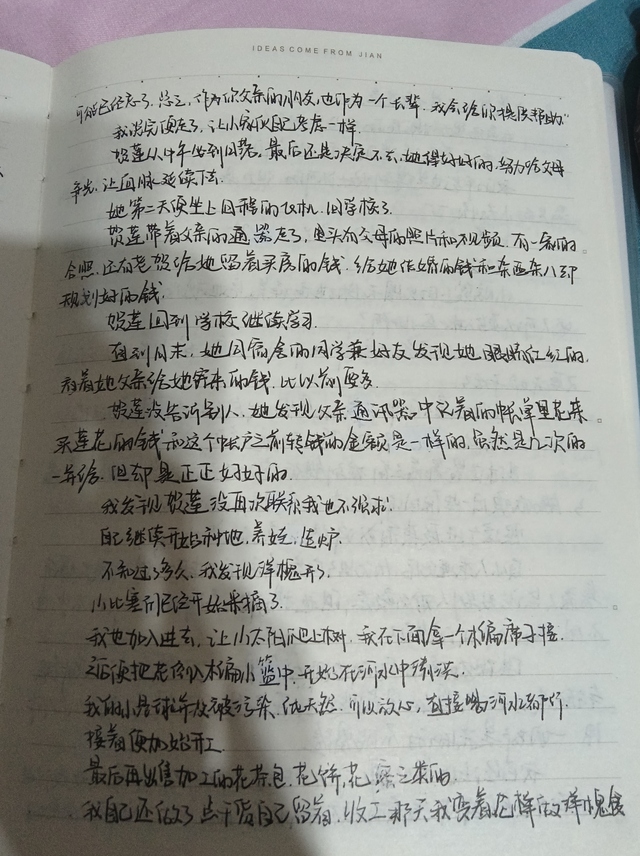 IDEAS COME FROM JIAN
可能已经忘了。总之，作为你父亲的朋友，也作为一个长辈，我会给你提供帮助"
我说完便走了，让小家伙自己考虑一样。
贺莲从中午坐到日落，最后还是决定不去，她得好好的，努力给父母
争光，让血脉延续下去。
她第二天便坐上回程的飞机，回学校了。
贺莲带着父亲的通讯器走了，里头有父母的照片和视频，有一家的
合照，还有老贺给她留着买房的钱，给她作嫁的钱和东西杂八却
规划好的钱。
贺莲回到学校继续学习。
直到周末，她同宿舍的同学兼好友发现她眼眶红红的，
看着她父亲给她寄来的钱，比以前更多。
贺莲没告诉别人，她发现父亲通讯器中又着的帐单里花来
买莲花的钱和这个帐户之前转钱的金额是一样的，虽然是几次的
一并给，但却是正正好好的。
我发现贺莲没再次联系我也不强求。
自己继续开始种地，养娃，连炉。
不知过了多久，我发现洋槐开了。
小比塞尔已经开始采摘了。
我也加入进去，让小不阳爬上树，我在下面拿一个木编席子接，
之后便把花倒入木编小篮中，开始在河水中清洗。
我们的小星球并没被污染，纯天然，可以放心，直接喝河水都行。
接着便加始开工。
最后再出售加工的花茶包、花饼、花蜜之类的。
我自己还做了些干货自己留着，收工那天我变着花样做洋槐食